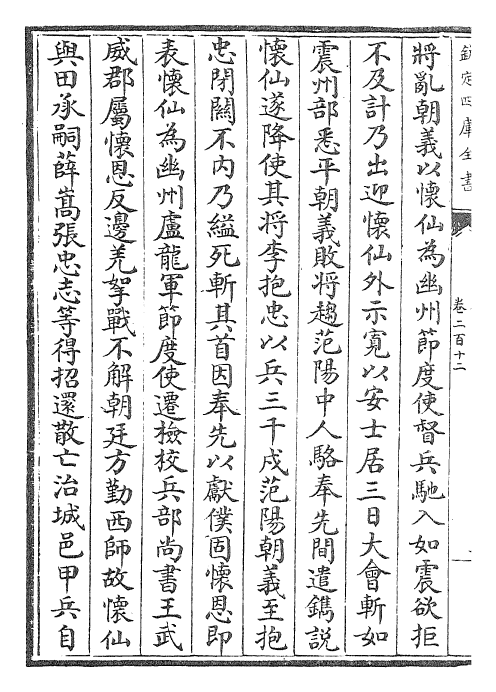 欽定四庫全書
卷二百十二
將亂朝義以懷仙為幽州節度使督兵馳入如震欲拒
不及計乃出迎懷仙外示寬以安士居三日大會斬如
震州部悉平朝義敗將趨范陽中人駱奉先間遣鐫說
懷仙遂降使其将李抱忠以兵三千戍范陽朝義至抱
忠閉關不内乃縊死斬其首因奉先以獻僕固懷恩即
表懷仙為幽州盧龍軍節度使遷檢校兵部尚書王武
威郡屬懷恩反邊羌挐戰不解朝廷方勤西師故懷仙
與田承嗣薛嵩張忠志等得招還散亡治城邑甲兵自